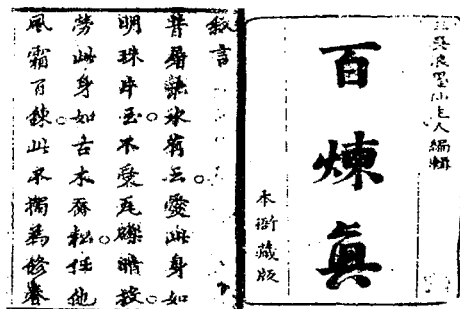 吳浪墨仙主人編輯
百煉真
本衙藏版
敘言
昔屠水有云愛此身如
明珠片玉不棄瓦礫暗投
勞此身如古木喬松任他
風霜百鍊此不獨為修養